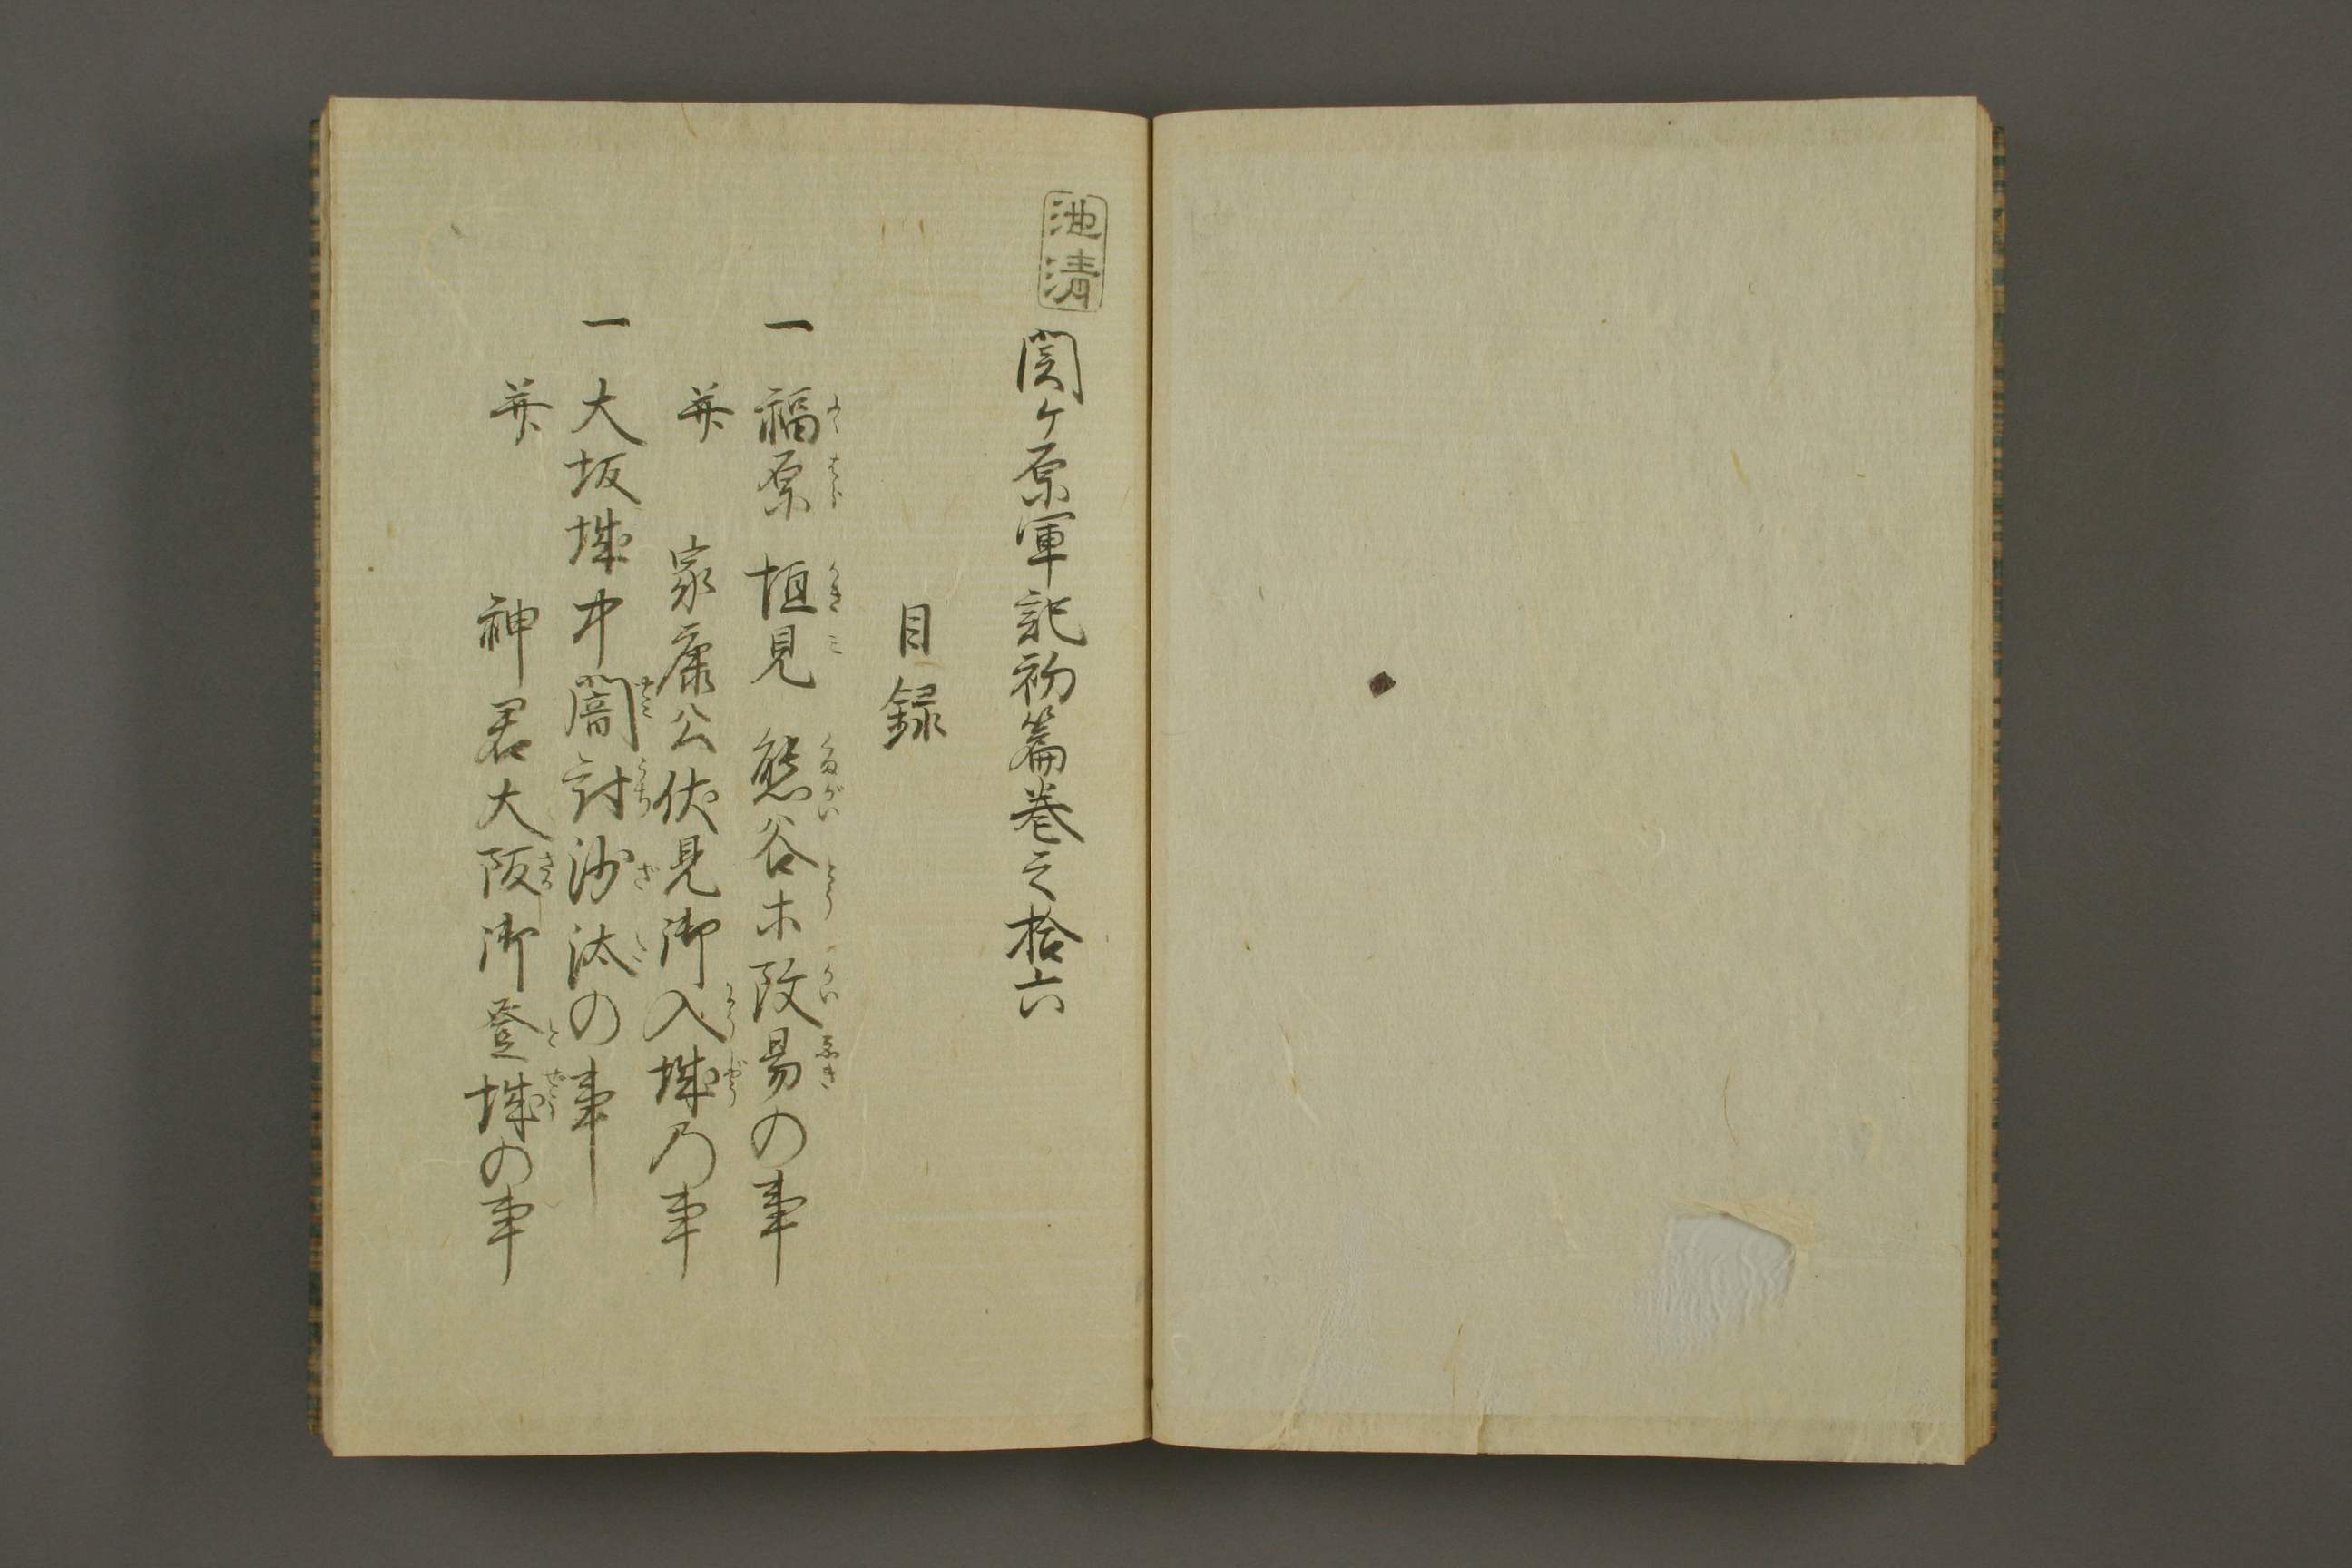 池清
関ヶ原軍記初篇巻之拾六
目録
一 福原 垣見 熊谷木改易の事
并 家康公伏見御入城乃事
一 大坂城中闇討沙汰の事
并 神君大阪御登城の事